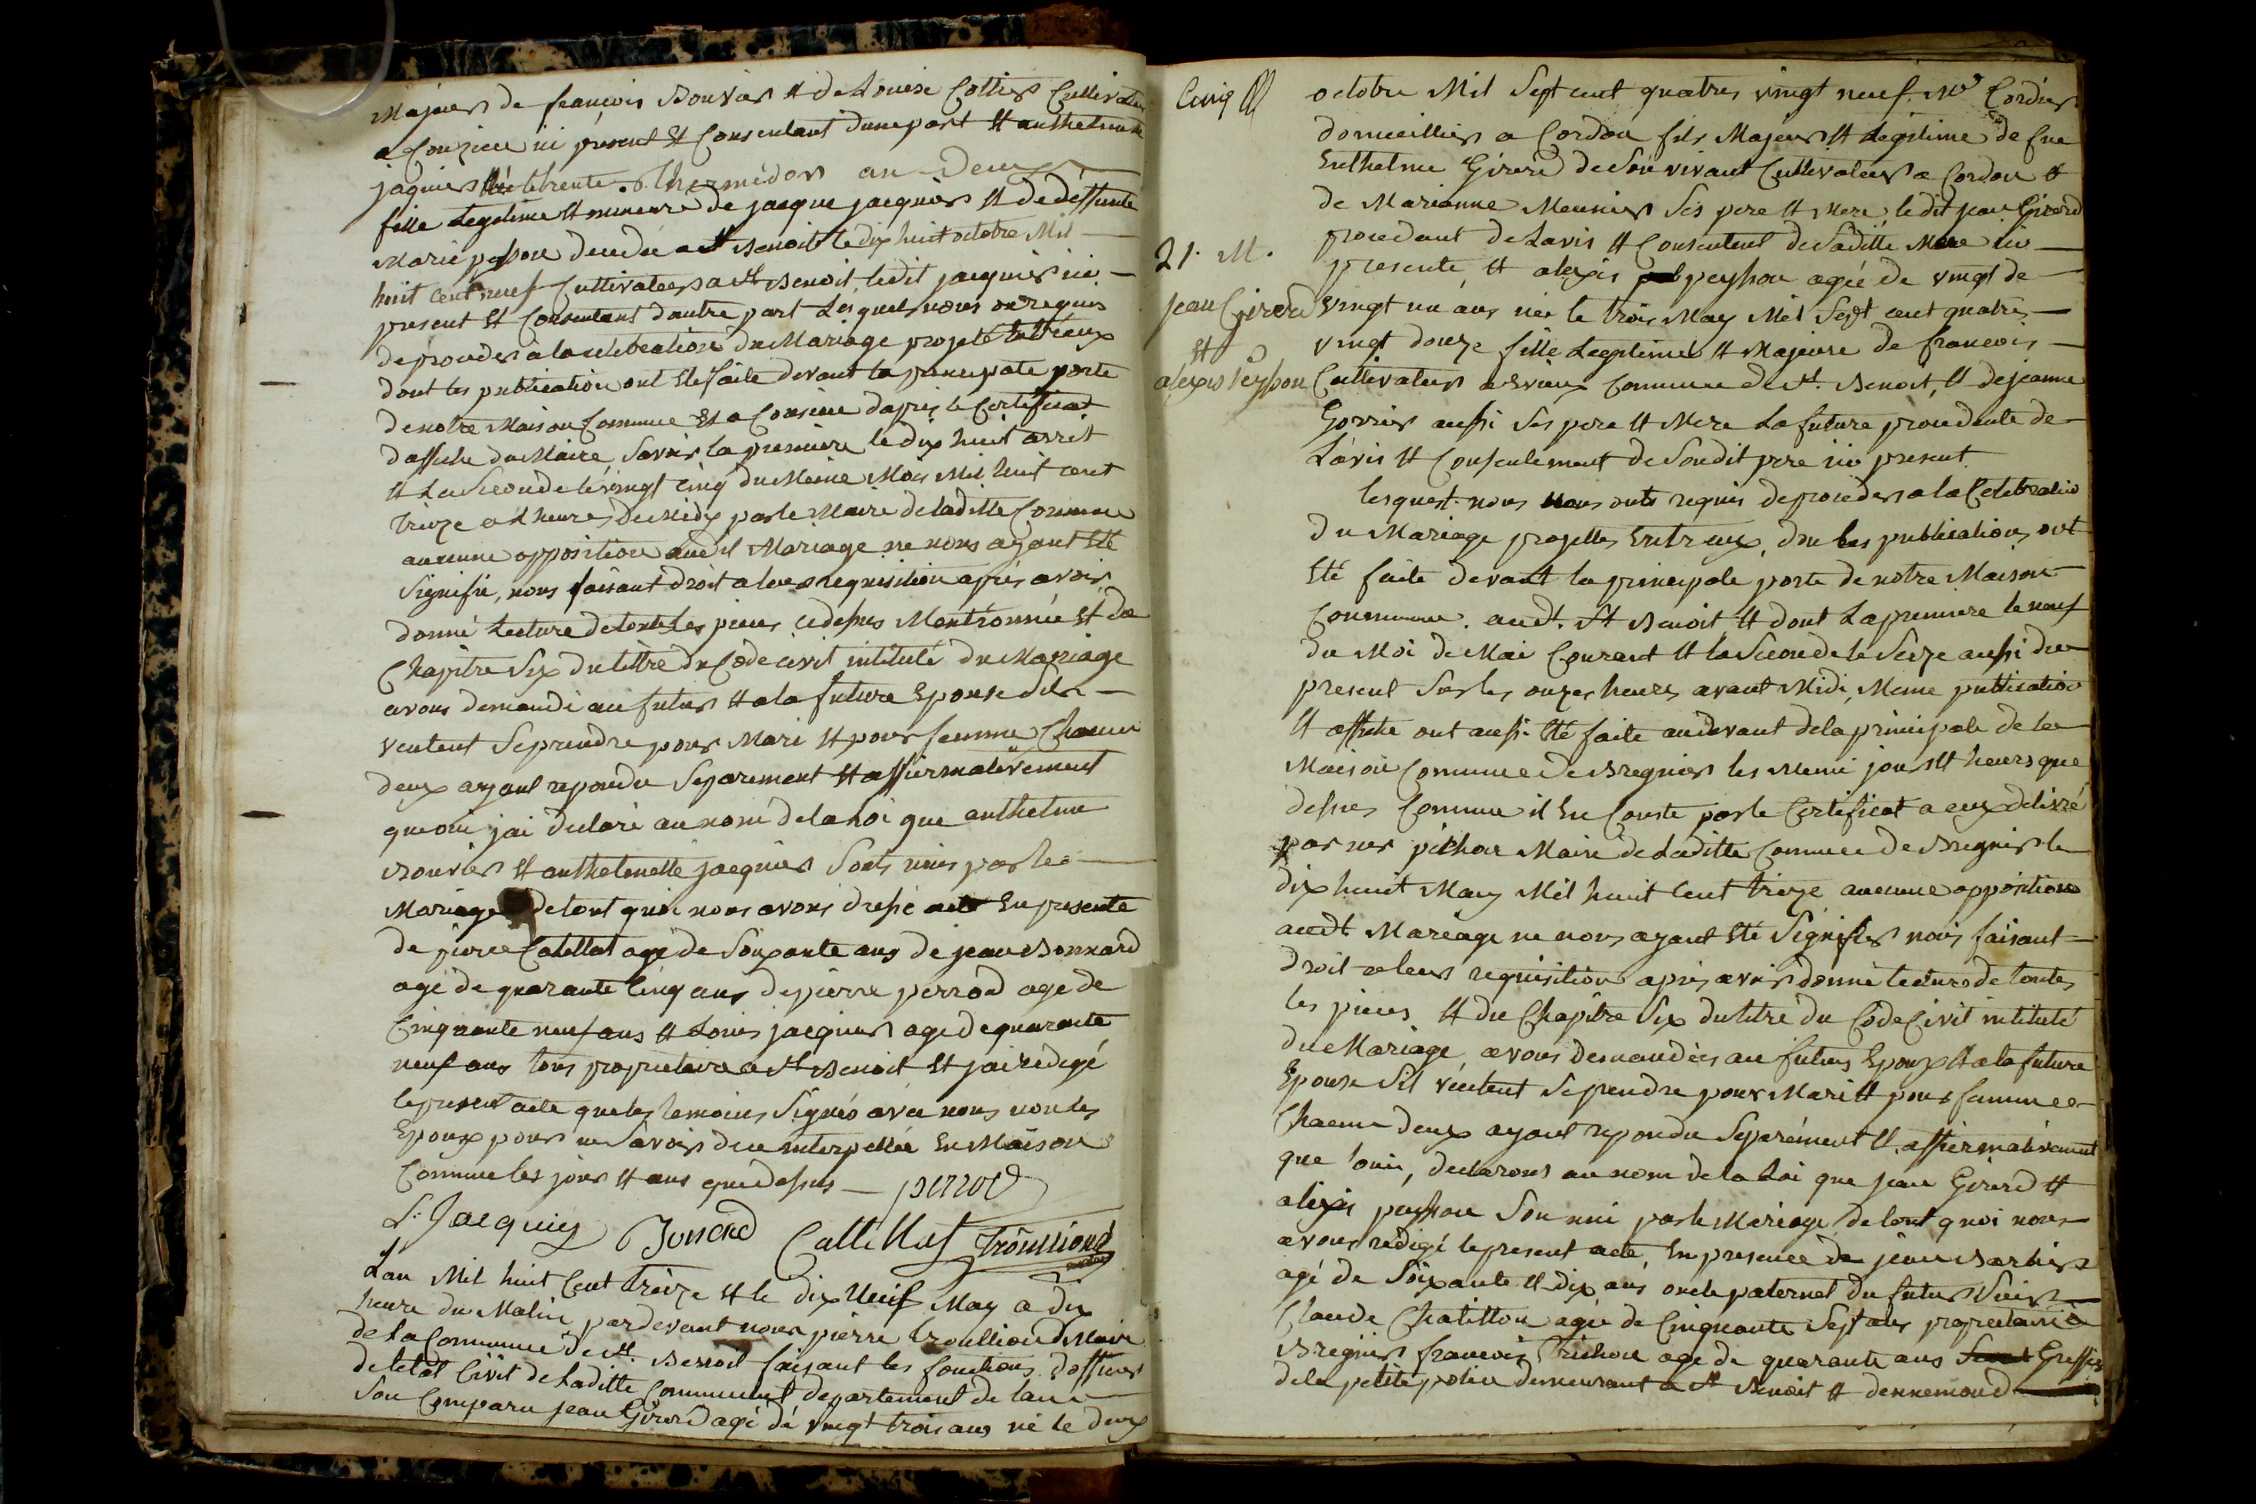 Majeur de françois Bouvier et de Louise Collier Cultivateur
a Conzieu ici présent et Consentant dune part et anthelmette
jaquier née le trente thermidor an Deux
fille Legitime et mineure de jacque jacquier et de deffunte
Marie peysson decedée a St Benoit le dix huit octobre Mil
huit cent neuf Cultivateur a St Benoit, ledit jacquier ici
present et Consentant dautre part Lesquels nous on requis
de proceder a la celebration du Mariage projeté Entreux
dont les publication ont Eté faite devant la principale porte
de notre Maison Commune et a Consieu dapres le Certificat
daffiche du Maire, Savoir la premiere le dix huit avril
et La Seconde le vingt cinq du Meme Mois Mil huit cent
treize a L'heure de Midy par le Maire de laditte Commune
aucune opposition audit Mariage ne nous ayant Eté
Signifié, nous faisant droit a leur requisition après avoir
donné Lecture de toutes les pieces cidessus Mentionnée et du
Chapitre Six du tittre du Code civil intitulé du Mariage
avons demandé au futur et a la future Epouse Sils
veulent Se prendre pour Mari et pour femme Chacun
deux ayant repondu Separement et affirmativement
que oui jai declaré au nom de la Loi que anthelme
Bouvier et anthelmette jacquier Sont unis par le
Mariage de tout quoi nous avons dressé acte En presente
de pierre Catellat agé de Soixante ans de jean Bonnard
agé de quarante Cinq ans de pierre perrod agé de
Cinquante neuf ans et Louis jacquier agé de quarante
neuf ans tous proprietaire a St Benoit et jai redigé
le present acte que les temoins Signés avec nous non les
Epoux pour ne Savoir de ce interpellée En Maison
Commune les jour et ans que dessus — perrod
L. Jacquier Bonard Catellat Trouilliond
Lan Mil huit Cent treize et le dix Neuf May a dix
heure du Matin pardevant nous pierre trouilliond Maire
de La Commune de St. Benoit faisant les fonctions dofficier
de letat Civil de laditte Commune departement de lain
Son Comparu jean Girerd agé de vingt trois ans né le deux
octobre Mil Sept cent quatres vingt neuf. Cordier
domicillier a Cordon fils Majeur et Legitime de feu
Enthelme Girerd de Son vivant Cultivateur a Cordon et
de Marianne Meunier Ses pere et Mere, le dit jean Girerd
procedant de Lavis et Consentent de Saditte Mere ici
21. M.
presente, et alexis peysson agée de vingt de
jean Girerd
et
alexis peysson
vingt un ans née le trois May Mil Sept cent quatres
vingt douze fille Legitime et Majeure de francois
Cultivateur a Evieux Commune de St. Benoit, et de jeanne
Gorrier aussi Ses pere et Mere La future procedente de
Lavis et Consentement de Sondit pere ici present
lesquest nous nous onts requis de proceder a la Celebratio
du Mariage projettes Entreux, don les publications ont
Eté faite devant la principale porte de notre Maison
Commune. audt. St Benoit, et dont La premiere le neuf
du Moi de Mai Courant et la Seconde le Seize aussi du
present Sur les onzes heures avant Midi, Meme publication
et affiche ont aussi Eté faite audevant de la principale de la
Maison Commune de Bregnier les Meme jour et heurs que
dessus Comme il En Conste par le Certificat a eux delivré
par mr pichon Maire de Laditte Commune de Bregnier le
dix huit May Mil huit Cent treize aucune opposition
audt Mariage ne nous ayant Eté Signifier nous faisant
droit a leur requisition apres avoir donné lecture de toutes
les pieces et du Chapitre Six du titre du Code Civil intitulé
du Mariage, avons demandées au futurs Epoux et a la future
Epouse Sil veulent Se prendre pour Mari et pour femme
Chacun deux ayant repondu Separément et affirmativement
que oui, declarons au nom de la Loi que jean Girerd et
alexis peysson Son uni par le Mariage de tout quoi nous
avons redigé le present acte, En presence de jean Barbier
agé de Soixante et dix ans oncle paternel du futur
Claude Chatillon agée de Cinquante Sept ans proprietaire a
Bregnier francois Pichon agé de quarante ans Greffier
de la petite police demeurant a St Benoit et dennemond